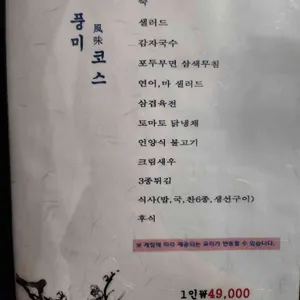 풍미 風味 코스
죽
샐러드
감자국수
포두부면 삼색무침
연어,마 샐러드
삼겹육전
토마토 닭냉채
언양식 불고기
크림새우
3종튀김
식사(밥,국,찬6종,생선구이)
후식
보 계절에 따라 제공되는 요리가 변동될 수 있습니다.
1인₩49,000